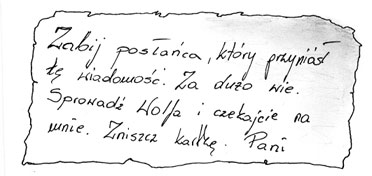 Zabij posłańca, który przyniósł
tę wiadomość. Za dużo wie.
Sprowadź Wolfa i czekajcie na
mnie. Zniszcz kartkę. Pani